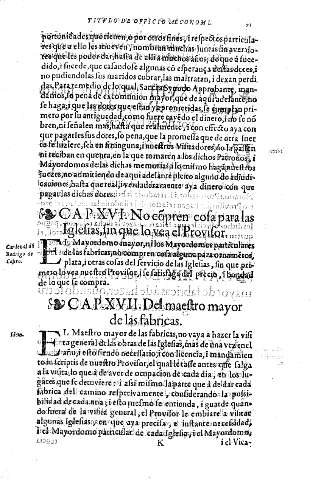 TITVLO DE OFFICIO ŒCONOMI. 21
portunidades que tienen, o por otros fines, i respectos particula-
res que a ello les mueven, nombran muchas juntas sin
tes que les poder dar, hasta de alli a muchos años, do que
dido, i sucede, que casandose algunas con esperança destas dotes, i
no pudiendo las sus maridos cobrar, las maltratan, i dexan perdi
das. Para remedio de lo qual, Sancta Synodo Approbante, man-
damos, so pena de excomunion mayor, que de aqui adelante, no
se haga; i que las dotes que estan ya prometidas, se cumplan pri-
mero por su antiguedad, como fuere cavedo el dinero, i no se nō
bren, ni señalen mas, hasta que realmente, i con efecto aya con
que pagarlas sus dotes, so pena, que la promessa que de otra suer
te se hiziere, sea en si ninguna, i nuestros Visitadores, no la passen
ni reciban en quenta, en la que tomaren a los dichos Patronos, i
Mayordomos de las dichas memorias
juezes, no admitiendo de aqui adelante pleito alguno de adjudi-
caciones, hasta que real, i verdaderamente aya dinero con que
pagar las dichas dotes.
CAP. XVI. No cōpren cosa para las
Iglesias, sin que lo vea el Provisor.
Cardenal dō
Rodrigo de
Castro.
EL Mayordomo mayor, ni los Mayordomos particulares
de las fabricas, no compren cosa alguna para ornamētos,
plata, i otras cosas del servicio de las Iglesias, sin que pri-
mero lo vea nuestro Provisor, i se satisfaga del precio, i bondad
de lo que se compra.
CAP. XVII. Del maestro mayor
de las fabricas.
Idem.
EL Maestro mayor de las fabricas, no vaya a hazer la visi
ta general de las obras de las Iglesias, mas de una vez en el
año, i esto siendo necessario, i con licencia, i mandamien
to in scriptis de nuestro Provisor, el qual le tasse antes que salga
a la visita, lo que à de aver de ocupacion de cada dia, en los lu-
gares que se detuviere: i assi mismo la parte que à de dar cada
fabrica del camino respectivamente, considerando la possi-
bilidad de cada una; i esto mesmo se entienda, i guarde quan-
do fuera de la visita general, el Provisor le embiare a visitar
algunas Iglesias, en que aya precisa, e instante necessidad,
i el Mayordomo particular de cada Iglesia, i el Mayordomo,
K i el Vica-